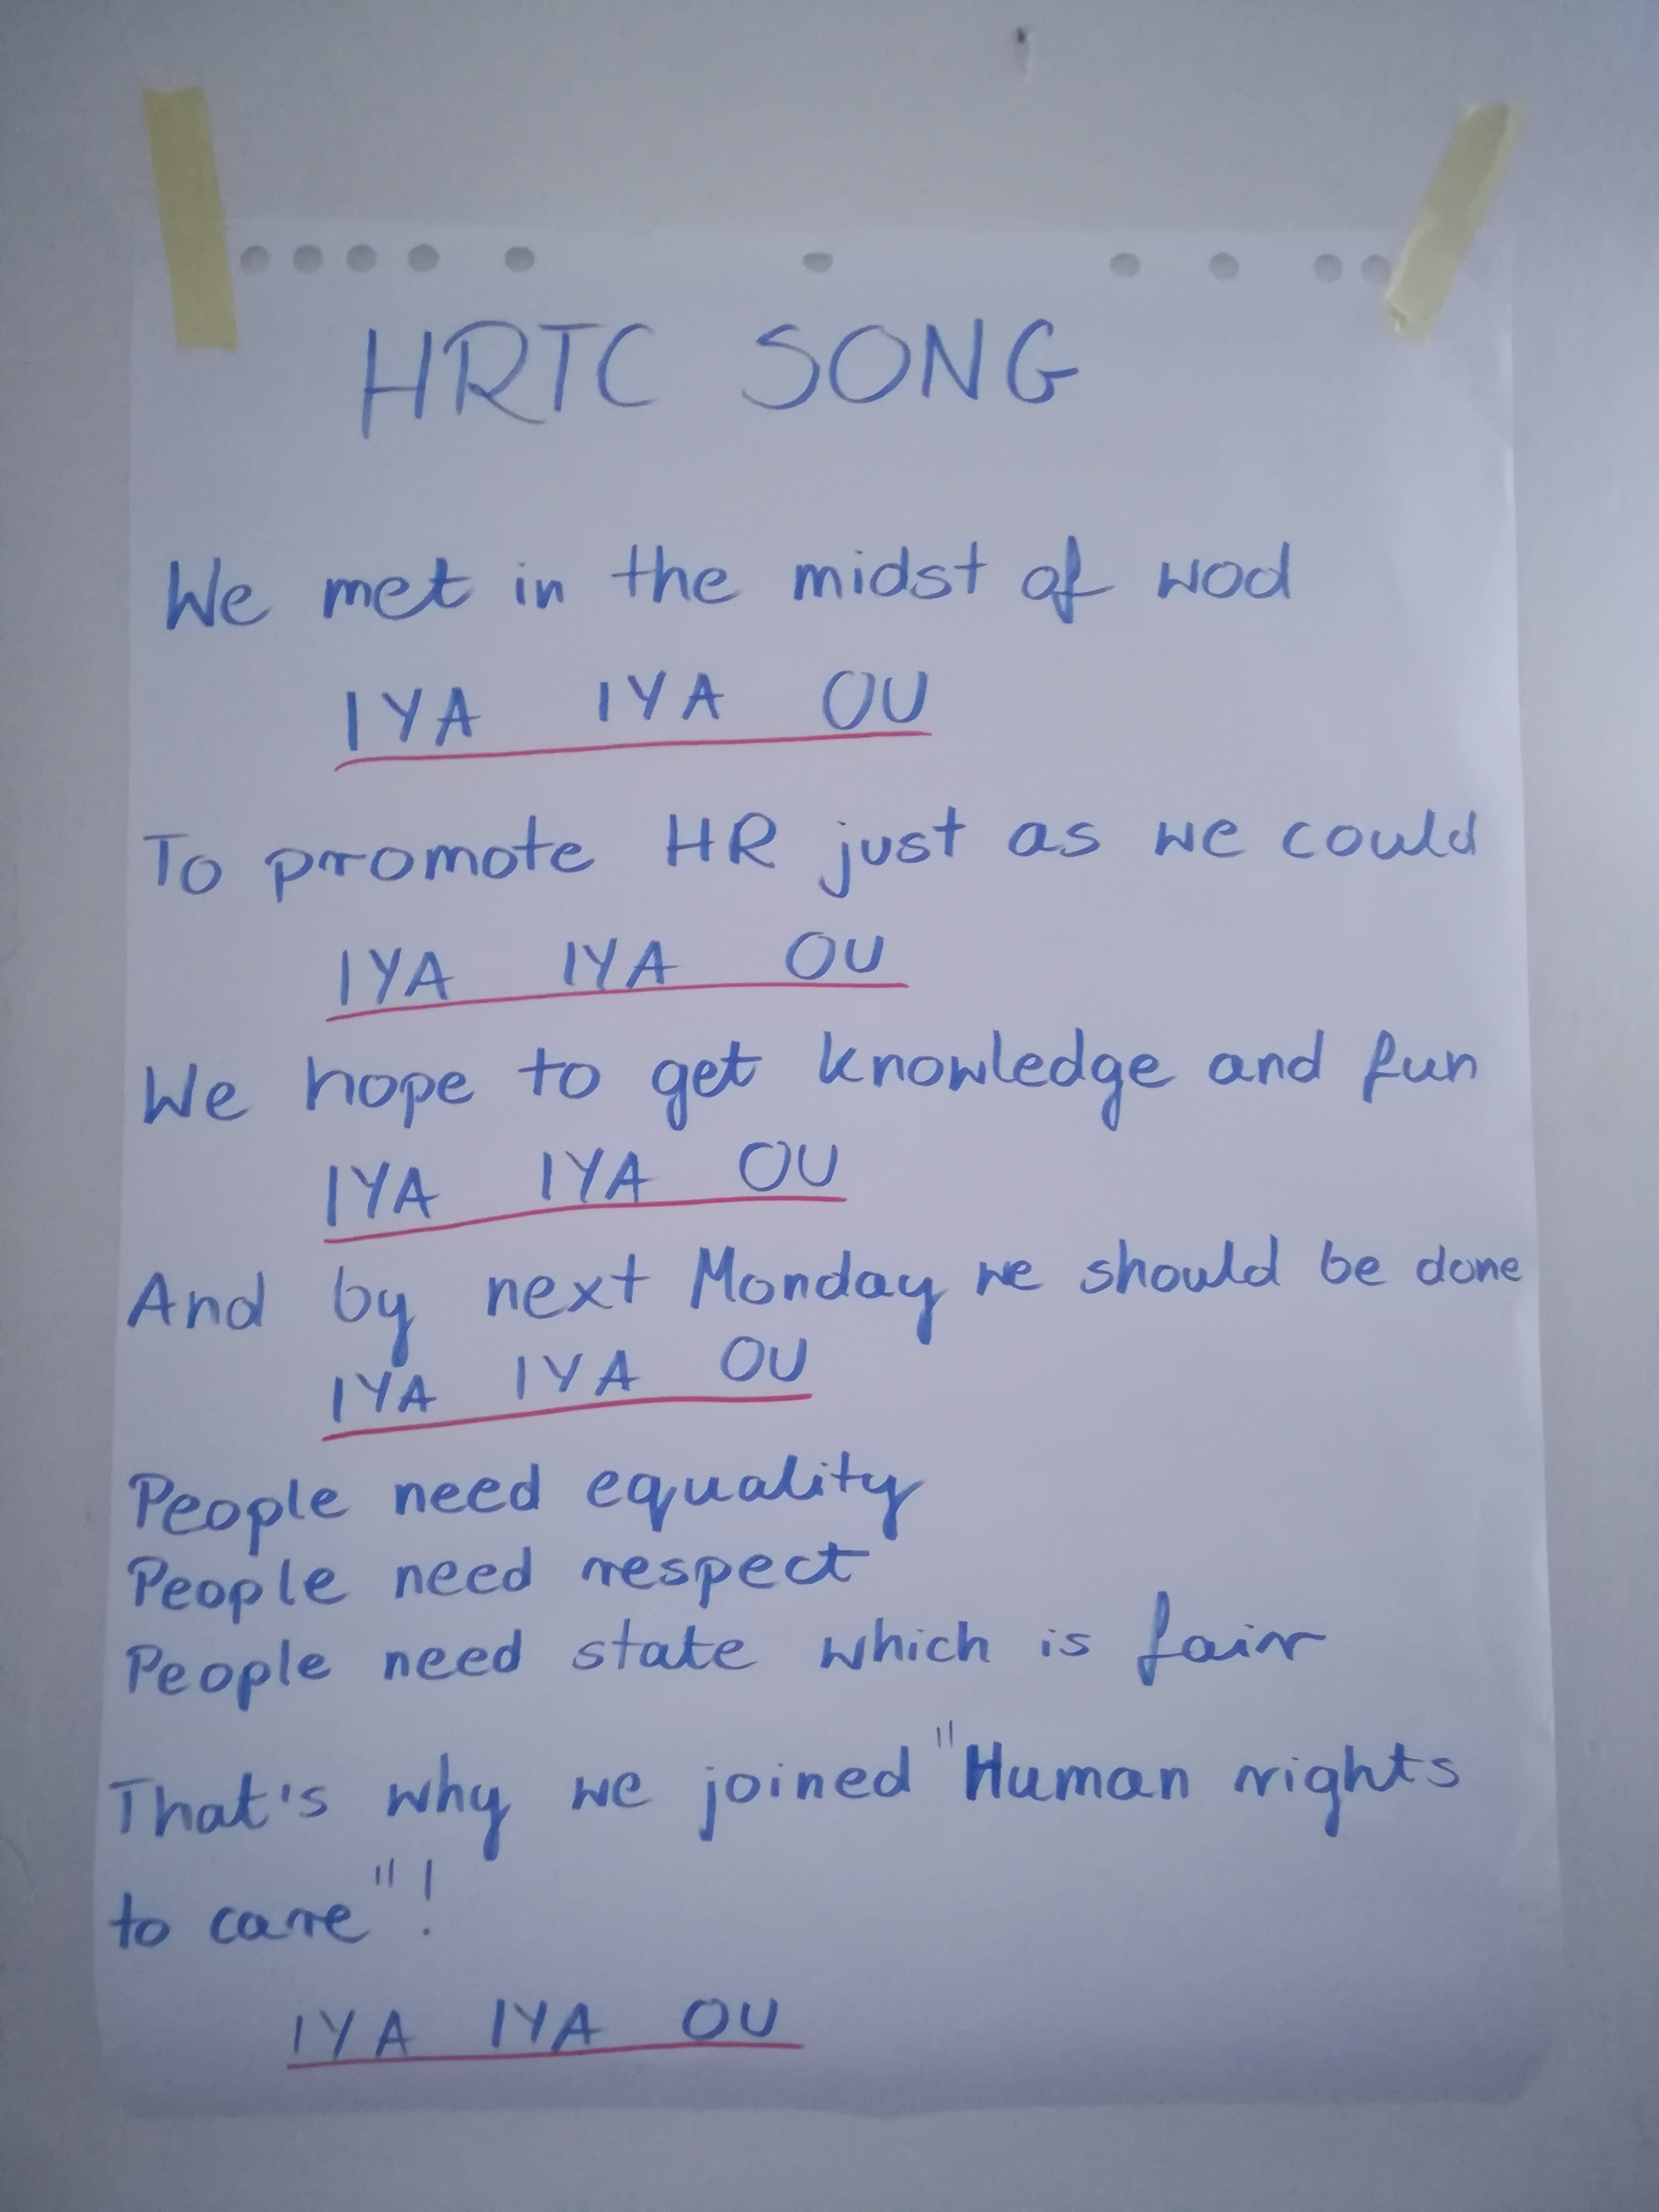 HRTC SONG
We met in the midst of wod
IYA IYA OU
To promote HR just as we could
IYA IYA OU
We hope to get knowledge and fun
IYA IYA OU
And by next Monday we should be done
IYA IYA OU
People need equality
People need respect
People need state which is fair
That's why we joined "Human rights
to care"!
IYA IYA OU